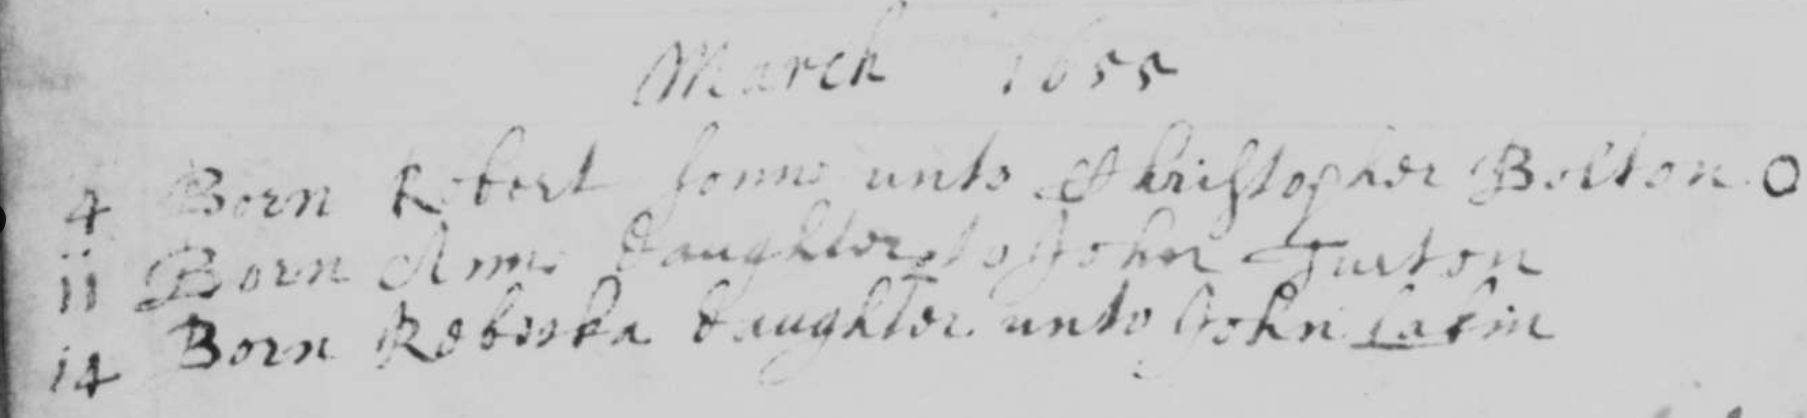 March 1655
4 Born Robert sonne unto Christopher Bolton
11 Born Anne daughter to John Turton
14 Born Rebecka daughter unto John